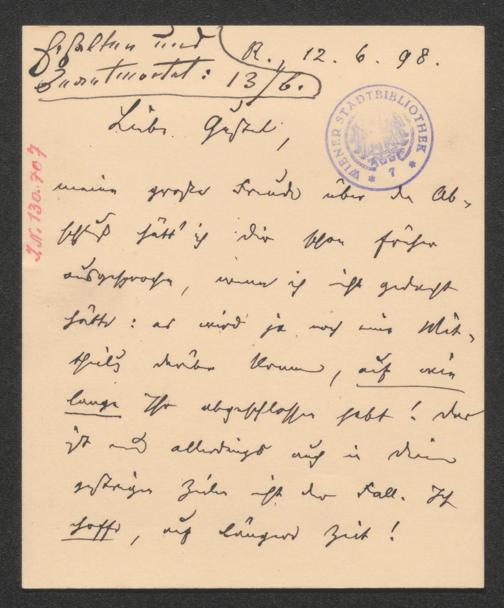 Erhalten und
beantwortet: 13/6.
R., 12. 6. 98.
WIENER STADTBIBLIOTHEK
* 7 *
I.N. 130.707
Liebe Gustel,
meine große Freude über den Ab-
schluß hätt' ich Dir schon früher
ausgesprochen, wenn ich nicht gedacht
hätte: es wird ja noch eine Mit-
theilung darüber kommen, auf wie
lange Ihr abgeschlossen habt! Das
ist allerdings auch in Deinen
gestrigen Zeilen nicht der Fall. Ich
hoffe, auf längere Zeit!